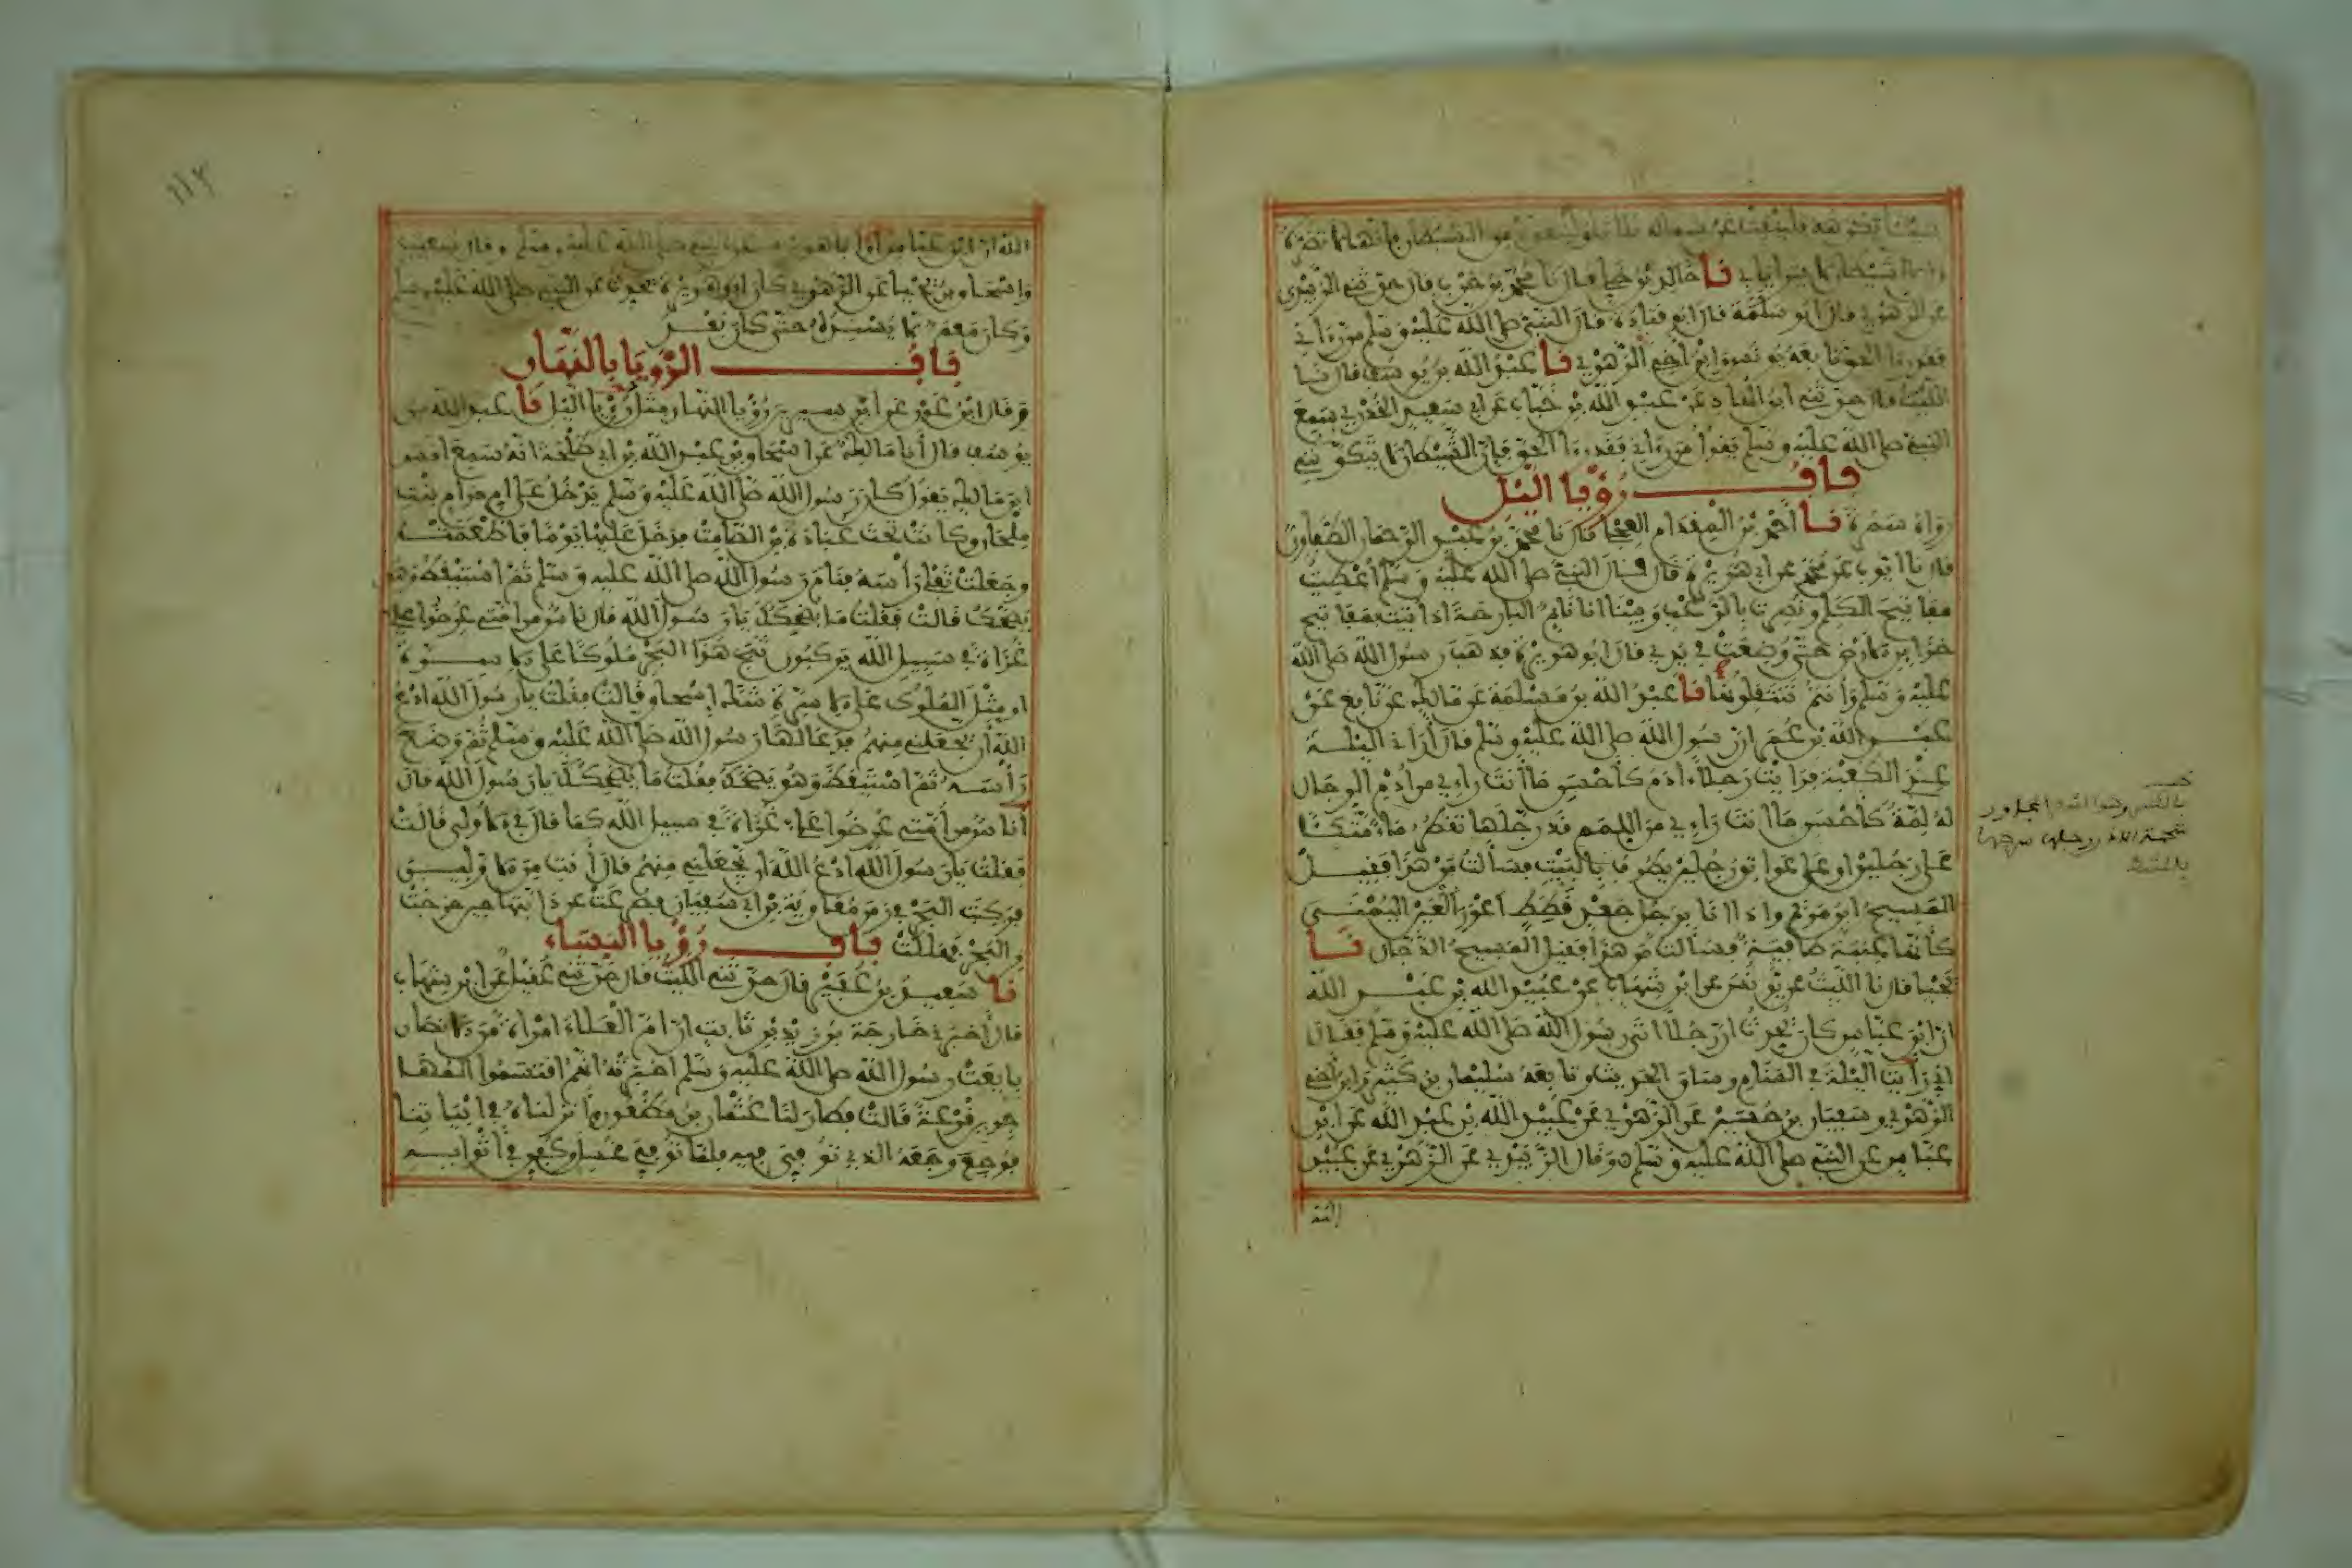 شيئا يكرهه فلينفث عن شماله ثلاثا وليتعوذ من الشيطان فإنها لا تضره
وإن الشيطان لا يتراءى بي نا خالد بن خلي قال نا محمد بن حرب قال حدثني الزبيدي
عن الزهري قال أبو سلمة قال أبو قتادة قال النبي صلى الله عليه وسلم من رءاني
فقد رءا الحق تابعه يونس وابن أخي الزهري نا عبد الله بن يوسف قال نا
الليث قال حدثني ابن الهاد عن عبد الله بن خباب عن أبي سعيد الخدري سمع
النبي صلى الله عليه وسلم يقول من رءاني فقد رءا الحق فإن الشيطان لا يتكونني
باب رؤيا اليل
رواه سمرة نا أحمد بن المقدام العجلي قال نا محمد بن عبد الرحمان الطفاوي
قال نا أيوب عن محمد عن أبي هريرة قال قال النبي صلى الله عليه وسلم أعطيت
مفاتيح الكلم ونصرت بالرعب وبينا أنا نائم البارحة إذ أتيت بمفاتيح
خزائن الأرض حتى وضعت في يدي قال أبو هريرة فذهب رسول الله صلى الله
عليه وسلم وأنتم تنتقلونها نا عبد الله بن مسلمة عن مالك عن نافع عن
عبد الله بن عمر أن رسول الله صلى الله عليه وسلم قال أراني الليلة
عند الكعبة فرأيت رجلا ءادم كأحسن ما أنت راءي من أدم الرجال
له لمة كأحسن ما أنت راءي من اللمم قد رجلها تقطر ماء متكئا
على رجلين أو على عواتق رجلين يطوف بالبيت فسألت من هذا فقيل
المسيح ابن مريم وإذا أنا برجل جعد قطط أعور العين اليمنى
كأنها عنبة طافية فسألت من هذا فقيل المسيح الدجال نا
يحيى قال نا الليث عن يونس عن ابن شهاب عن عبيد الله بن عبد الله
أن ابن عباس كان يحدث أن رجلا أتى رسول الله صلى الله عليه وسلم فقال
إني رأيت الليلة في المنام وساق الحديث وتابعه سليمان بن كثير وابن أخي
الزهري وسفيان بن حسين عن الزهري عن عبيد الله بن عبد الله عن ابن
عباس عن النبي صلى الله عليه وسلم وقال الزبيدي عن الزهري عن عبيد
الله
الله أن ابن عباس أو أبا هريرة عن النبي صلى الله عليه وسلم وقال شعيب
وإسحاق بن يحيى عن الزهري كان أبو هريرة يحدث عن النبي صلى الله عليه وسلم
وكان معمر لا يسنده حتى كان بعد
باب الرؤيا بالنهار
وقال ابن عون عن ابن سيرين رؤيا النهار مثل رؤيا اليل نا عبد الله بن
يوسف قال أنا مالك عن إسحاق بن عبد الله بن أبي طلحة أنه سمع أنس
ابن مالك يقول كان رسول الله صلى الله عليه وسلم يدخل على أم حرام بنت
ملحان وكانت تحت عبادة بن الصامت فدخل عليها يوما فأطعمته
وجعلت تفلي رأسه فنام رسول الله صلى الله عليه وسلم ثم استيقظ وهو
يضحك قالت فقلت ما يضحكك يا رسول الله قال ناس من أمتي عرضوا علي
غزاة في سبيل الله يركبون ثبج هذا البحر ملوكا على الأسرة
أو مثل الملوك على الأسرة شك إسحاق قالت فقلت يا رسول الله ادع
الله أن يجعلني منهم فدعا لها رسول الله صلى الله عليه وسلم ثم وضع
رأسه ثم استيقظ وهو يضحك فقلت ما يضحكك يا رسول الله قال
أناس من أمتي عرضوا علي غزاة في سبيل الله كما قال في الأولى قالت
فقلت يا رسول الله ادع الله أن يجعلني منهم قال أنت من الأولين
فركبت البحر في زمن معاوية بن أبي سفيان فصرعت عن دابتها حين خرجت
من البحر فهلكت باب رؤيا النساء
نا سعيد بن عفير قال حدثني الليث قال حدثني عقيل عن ابن شهاب
قال أخبرني خارجة بن زيد بن ثابت أن أم العلاء امرأة من الأنصار
بايعت رسول الله صلى الله عليه وسلم أخبرته أنهم اقتسموا المهـا
جرين قرعة قالت فطار لنا عثمان بن مظعون وأنزلناه في أبياتنا
فوجع وجعه الذي توفي فيه فلما توفي غسل وكفن في أثوابه